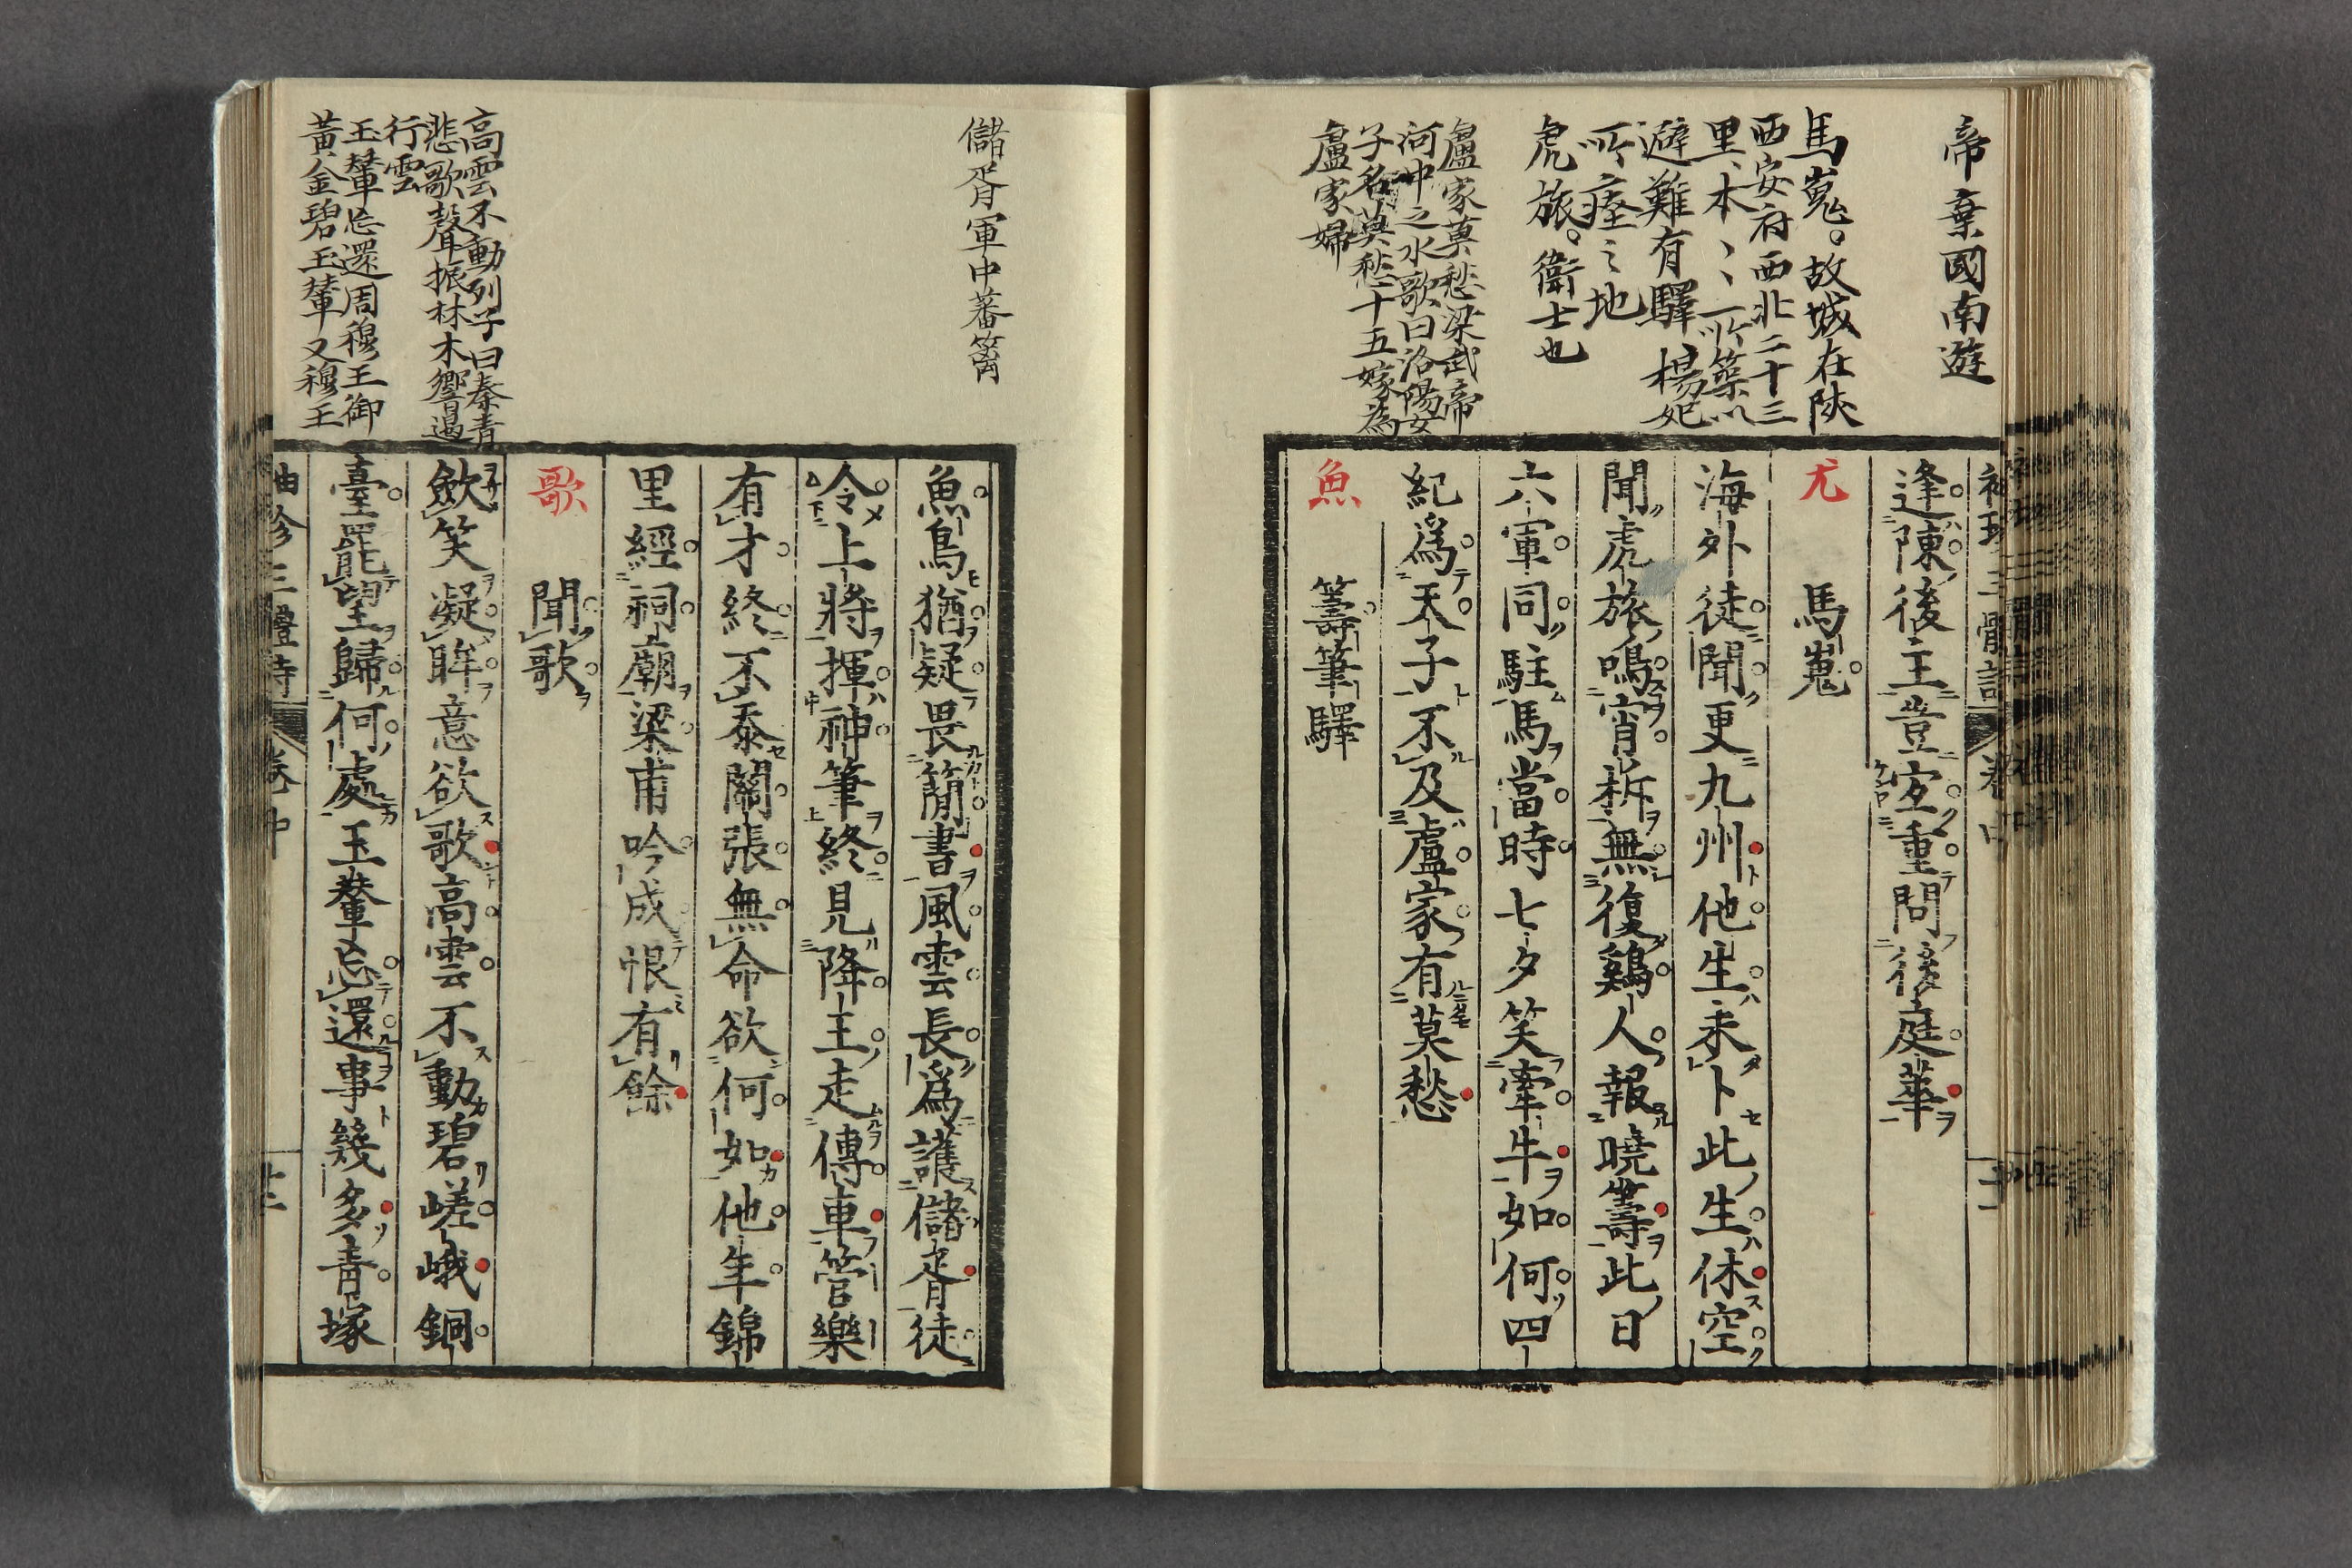 帝棄國南遊
馬嵬。故城在陜
西安府西北二十三
里、本、、所築以
避難有驛楊妃
所瘞之地
虎旅。衛士也
盧家莫愁梁武帝
河中之水歌曰洛陽女
子名莫愁十五嫁為
盧家婦
逢陳後主豈宜重問後庭華
尤 馬嵬
海外徒聞更九州他生未卜此生休空
聞虎旅鳴宵柝無復鷄人報曉籌此日
六軍同駐馬當時七夕笑牽牛如何四
紀爲天子不及盧家有莫愁
魚 籌筆驛
儲胥軍中蕃籬
高雲不動列子曰秦青
悲歌聲振林木響遏
行雲
玉輦忘還周穆王御
黃金碧玉輦又穆王
魚鳥猶疑畏簡書風雲長爲護儲胥徒
令上將揮神筆終見降王走傳車管樂
有才終不忝關張無命欲何如他年錦
里經祠廟梁甫吟成恨有餘
歌 聞歌
歛笑凝眸意欲歌高雲不動碧嵯峨銅
臺罷望歸何處玉輦忘還事幾多青塚
袖珍三體詩 卷中